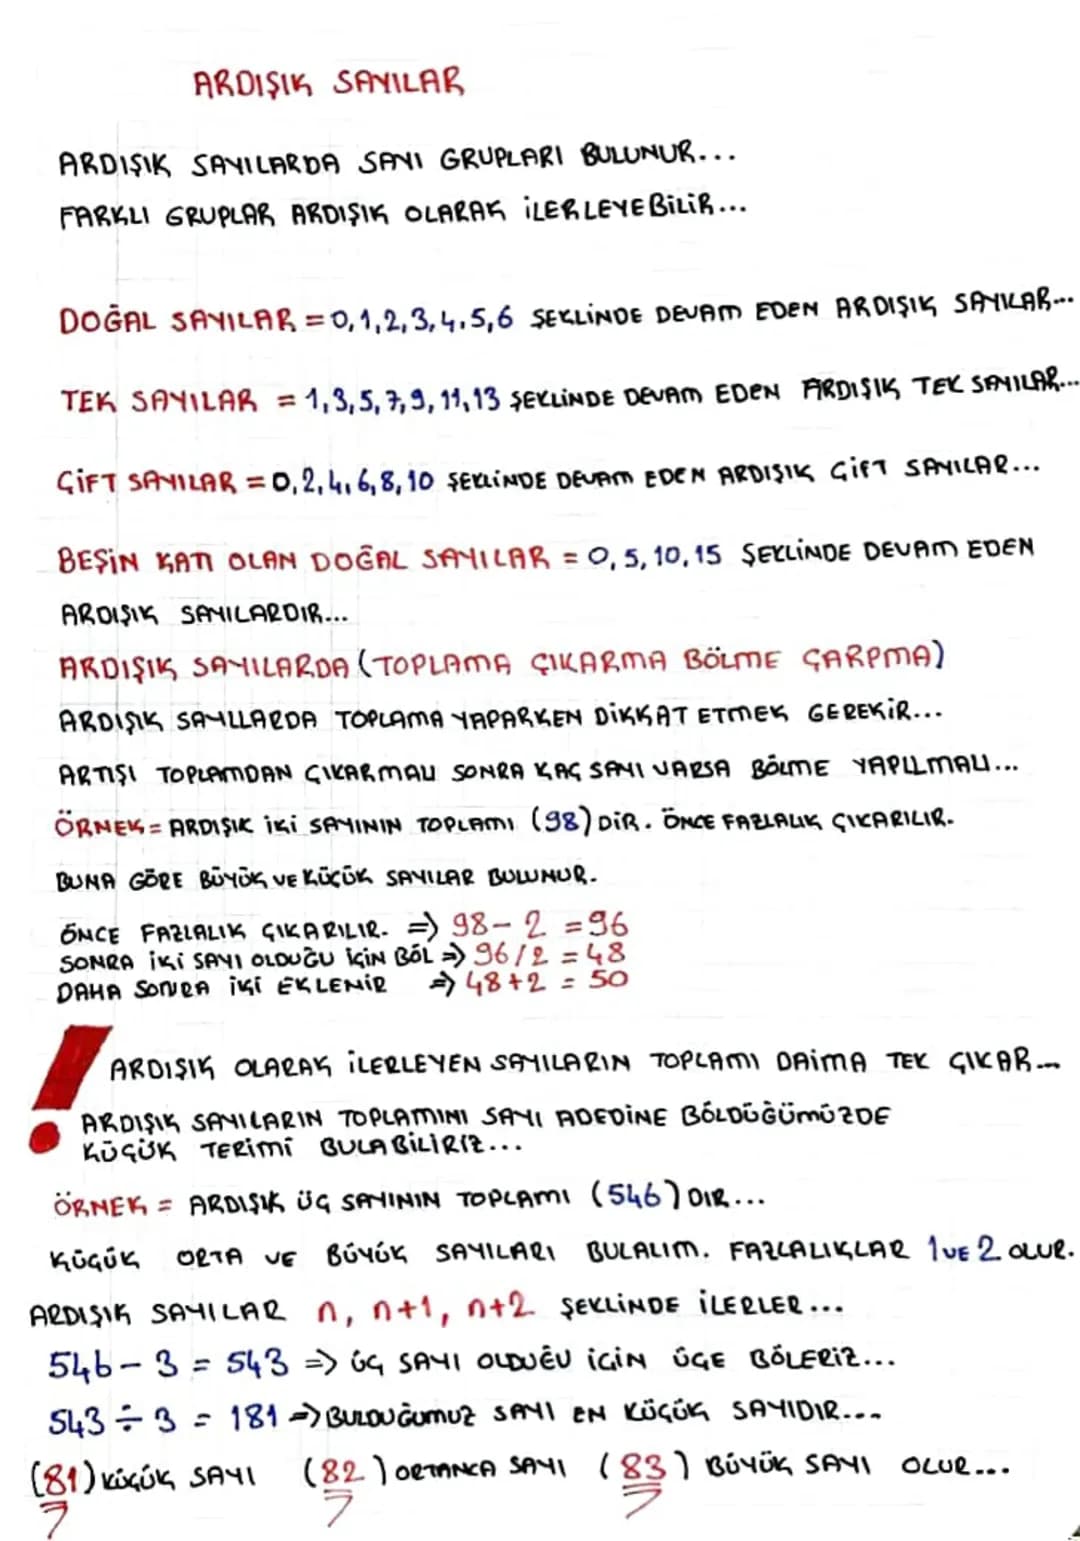 ARDIŞIK SAYILAR
ARDIŞIK SAYILARDA SAYI GRUPLARI BULUNUR...
FARKLI GRUPLAR ARDIŞIK OLARAK İLERLEYEBİLİR...
DOĞAL SAYILAR = 0,1,2,3,4,5,6 ŞEKLİNDE DEVAM EDEN ARDIŞIK SAYILAR...
TEK SAYILAR = 1,3,5,7,9,11,13 ŞEKLİNDE DEVAM EDEN ARDIŞIK TEK SAYILAR...
ÇİFT SAYILAR = 0,2,4,6,8,10 ŞEKLİNDE DEVAM EDEN ARDIŞIK ÇİFT SAYILAR...
BEŞİN KATI OLAN DOĞAL SAYILAR = 0,5,10,15 ŞEKLİNDE DEVAM EDEN
ARDIŞIK SAYILARDIR...
ARDIŞIK SAYILARDA (TOPLAMA ÇIKARMA BÖLME ÇARPMA)
ARDIŞIK SAYILLARDA TOPLAMA YAPARKEN DİKKAT ETMEK GEREKİR...
ARTIŞI TOPLAMDAN ÇIKARMALI SONRA KAÇ SAYI VARSA BÖLME YAPILMALI...
ÖRNEK = ARDIŞIK İKİ SAYININ TOPLAMI (98) DİR. ÖNCE FAZLALIK ÇIKARILIR.
BUNA GÖRE BÜYÜK VE KÜÇÜK SAYILAR BULUNUR.
ÖNCE FAZLALIK ÇIKARILIR. => 98 - 2 = 96
SONRA İKİ SAYI OLDUĞU İÇİN BÖL => 96/2 = 48
DAHA SONRA İKİ EKLENİR => 48+2 = 50
! ARDIŞIK OLARAK İLERLEYEN SAYILARIN TOPLAMI DAİMA TEK ÇIKAR...
ARDIŞIK SAYILARIN TOPLAMINI SAYI ADEDİNE BÖLDÜĞÜMÜZDE
KÜÇÜK TERİMİ BULABİLİRİZ...
ÖRNEK = ARDIŞIK ÜÇ SAYININ TOPLAMI (546) DIR...
KÜÇÜK ORTA VE BÜYÜK SAYILARI BULALIM. FAZLALIKLAR 1 VE 2 OLUR.
ARDIŞIK SAYILAR n, n+1, n+2 ŞEKLİNDE İLERLER...
546 - 3 = 543 => ÜÇ SAYI OLDUĞU İÇİN ÜÇE BÖLERİZ...
543 ÷ 3 = 181 => BULDUĞUMUZ SAYI EN KÜÇÜK SAYIDIR...
(81) KÜÇÜK SAYI (82) ORTANCA SAYI (83) BÜYÜK SAYI OLUR...